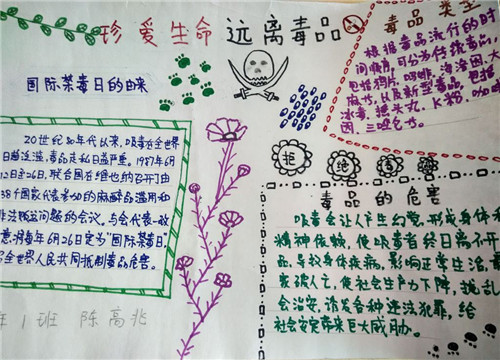 珍爱生命 远离毒品
国际禁毒日的由来
20世纪80年代以来,吸毒在全世界
日趋泛滥,毒品走私日益严重。1987年6月
12日至26日,联合国在维也纳召开由
38个国家代表
的麻醉品滥用和
非法贩运问题的会议。与会代表一致
同意将每年6月26日定为"国际禁毒日"
全世界人民共同抵制毒品危害。
年1班 陈高兆
毒品类型
根据毒品流行的时
间顺序,可分为传统毒品,
包括鸦片、吗啡、海洛因、大
麻等,以及新型毒品,包括
冰毒、摇头丸、K粉、
因、三唑仑等。
拒 绝 毒
毒品的危害
吸毒会让人产生幻觉,形成身体和
精神依赖,使吸毒者终日离不开
品,导致身体疾病,影响正常生活,
家破人亡,使社会生产力下降,扰乱
会治安,诱发各种违法犯罪,给
社会安定带来巨大威胁。